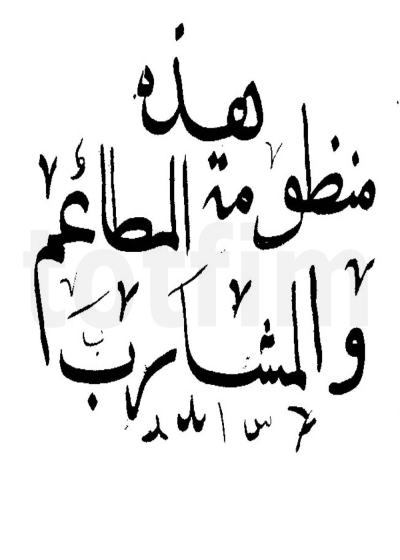 هذه
منظومة المطاعم
والمشارب
totfim